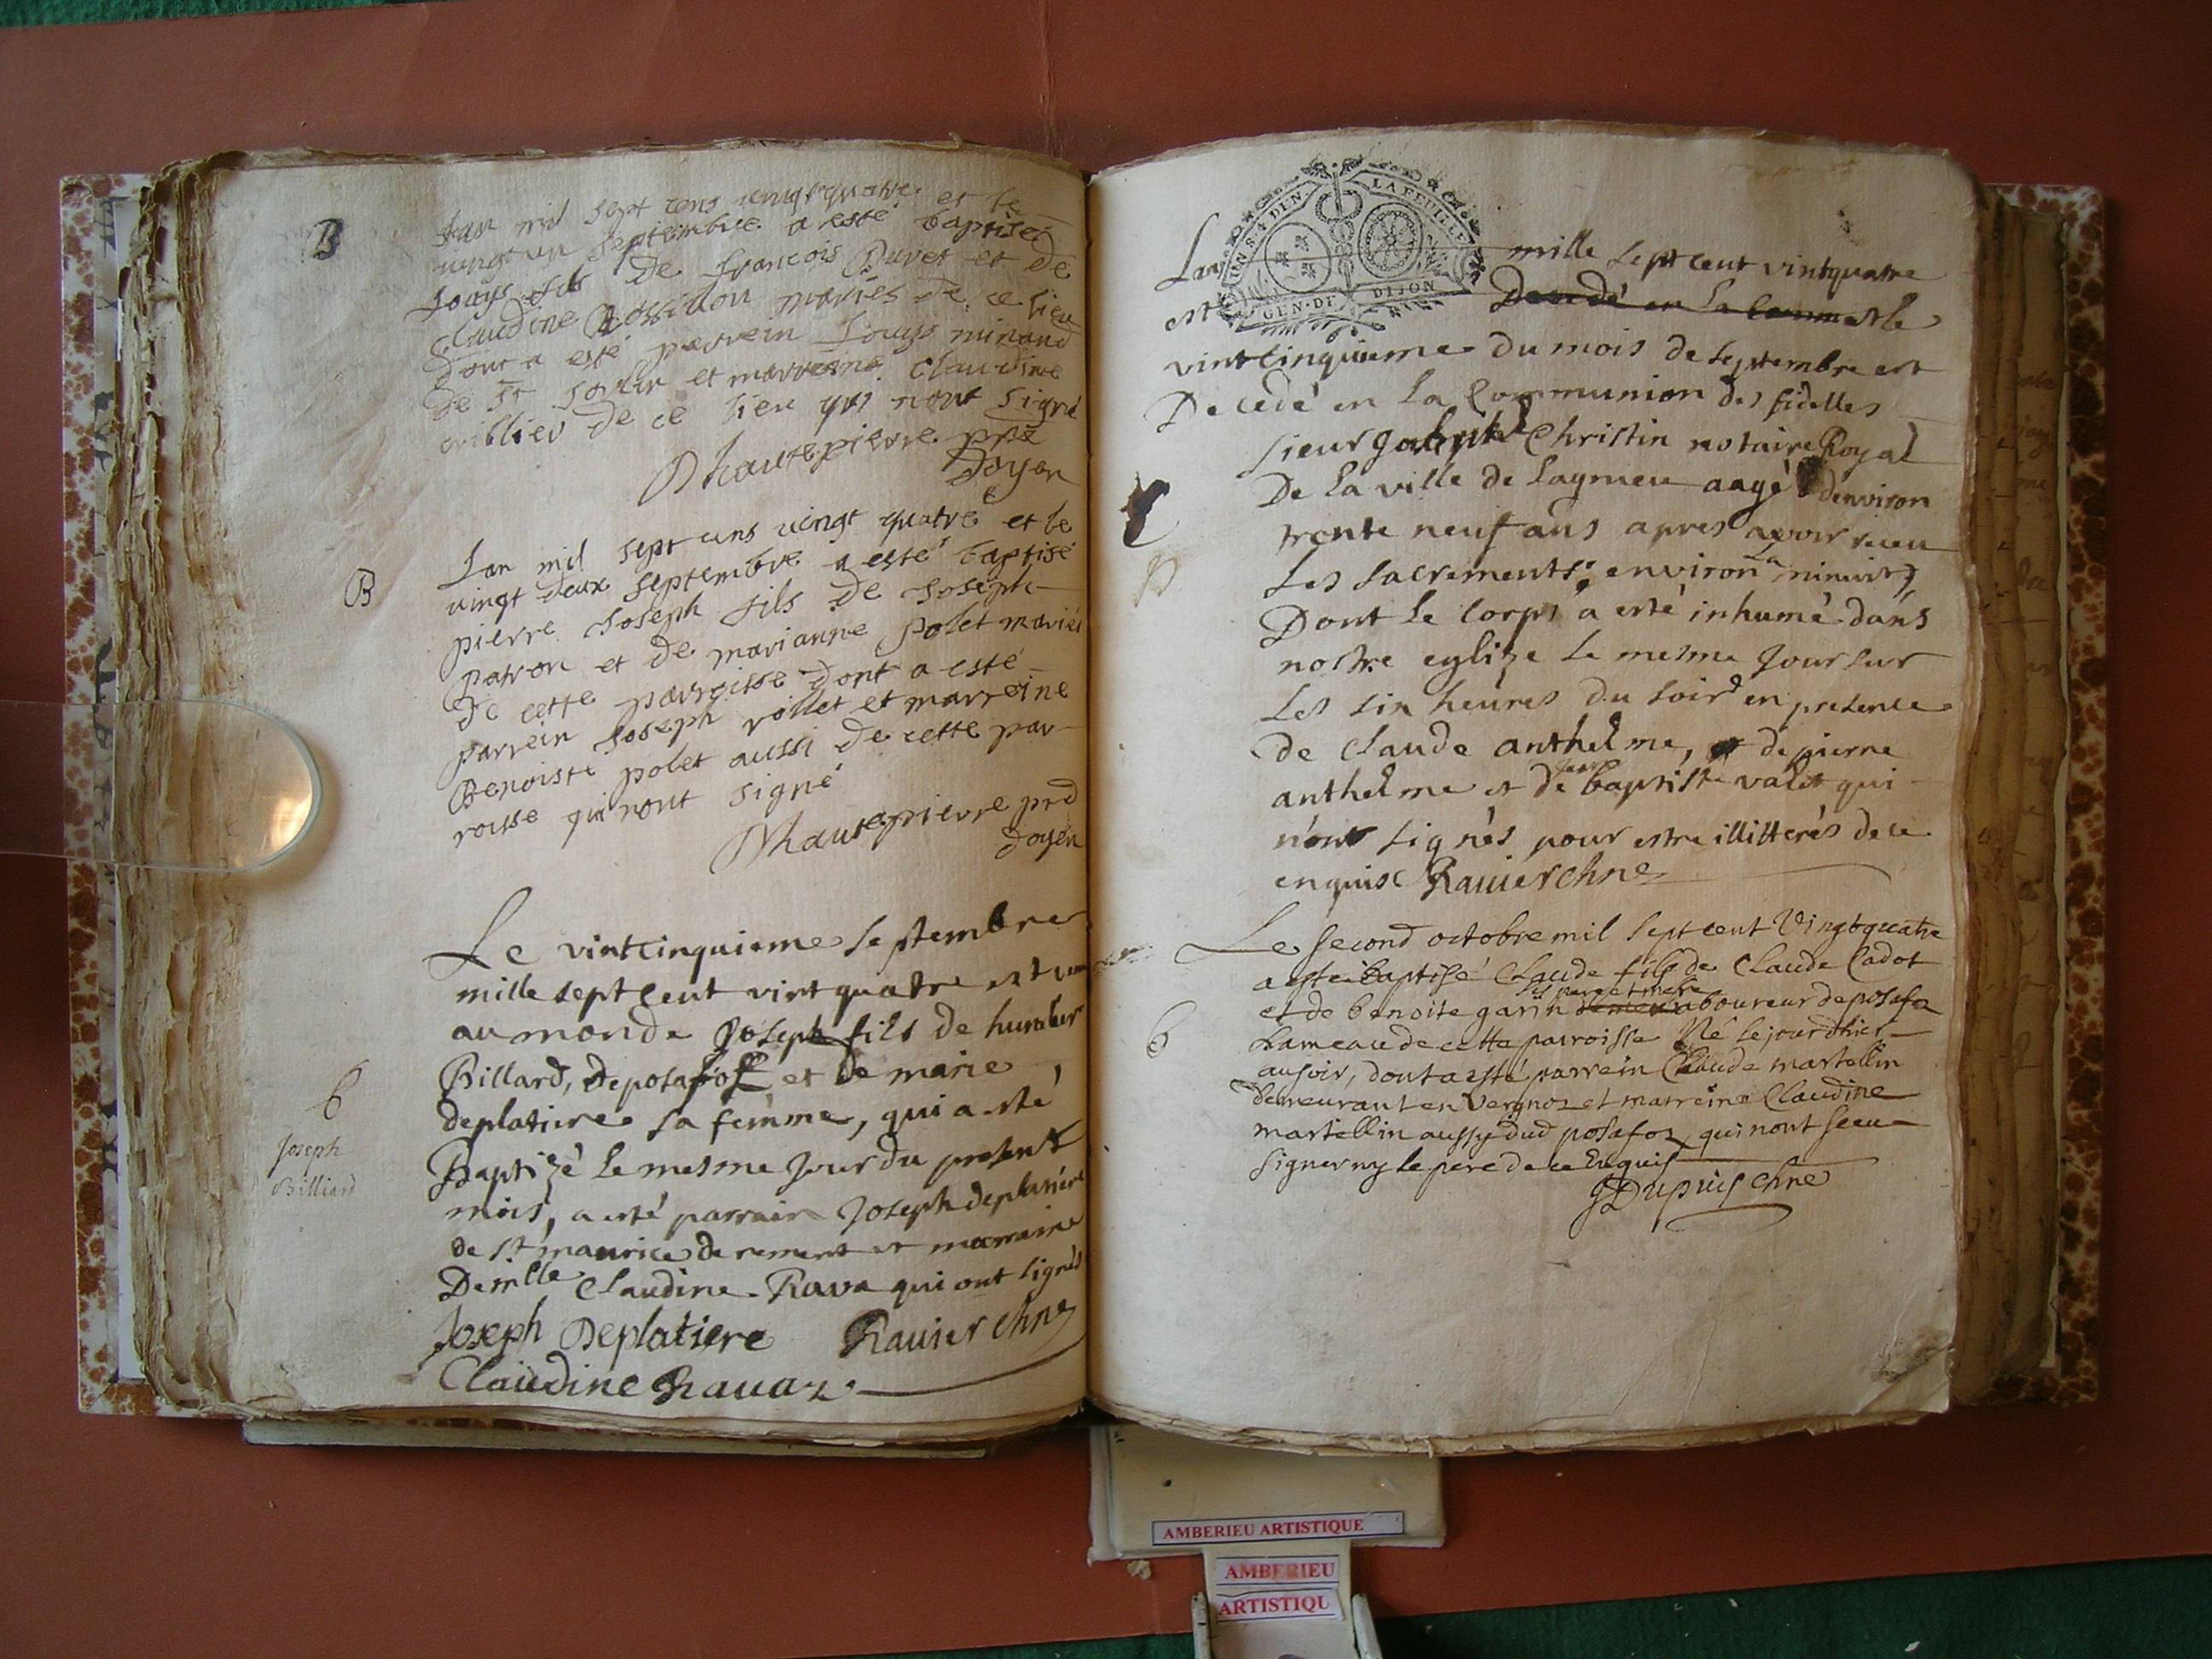 B
Lan mil sept cens vingt quatre et le
vingt un septembre a esté baptisé
Louys fils de francois Buret et de
claudine Rossillon mariés de ce lieu
dont a esté parrein Louys minand
de st et marreine claudine
de ce lieu qui nont signé
Dhautepierre pre
Doyen
B
Lan mil sept cens vingt quatre et le
vingt deux septembre a esté baptisé
pierre Joseph fils de Joseph
patron et de marianne polet mariés
de cette parroisse dont a esté
parrein Joseph rollet et marreine
Benoiste polet aussi de cette par-
roisse qui nont signé
Dhautepierre prd
doyen
Le vintcinquieme septembre
mille sept cent vint quatre est venu
au monde Joseph fils de humber
Billard, de posafol et de marie
deplatiere sa femme, qui a esté
Baptizé le mesme jour du present
mois, a esté parrain Joseph deplatiere
de st maurice de remens et marraine
Demlle Claudine Rava qui ont signés
Joseph Deplatiere Rauier chne
Claudine Rauaz
b
Joseph
Billiard
GEN. DE DIJON
LA FEUILLE
Lan mille sept cent vintquatre
est Decedé en la comm et le
vintcinquieme du mois de septembre est
Decedé en la Communion des fidelles
sieur Gabriel Christin notaire Royal
De la ville de Lagnieu aagé denviron
trente neuf ans apres avoir receu
Les sacrements environ a minuit,
Dont le corps a esté inhumé dans
nostre eglize le mesme jour sur
Les six heures du soir en presence
de Claude anthelme, et de pierre
anthelme et de Jean baptiste valet qui
n'ont signés pour estre illitterés de ce
enquis Rauier chne
Le second octobre mil sept cent vingt quatre
a esté baptisé Claude fils de Claude Cadot
ses pere et mere
et de benoite garin laboureur de posafoz
hameau de cette parroisse Né le jour dhier
au soir, dont a esté parrein Claude martellin
demeurant en Vergnoz et marreine Claudine
martellin aussy dud posafoz qui nont sceu
signer ny le pere de ce Enquis
b
GDupuis chne
AMBERIEU ARTISTIQUE
AMBERIEU
ARTISTIQU